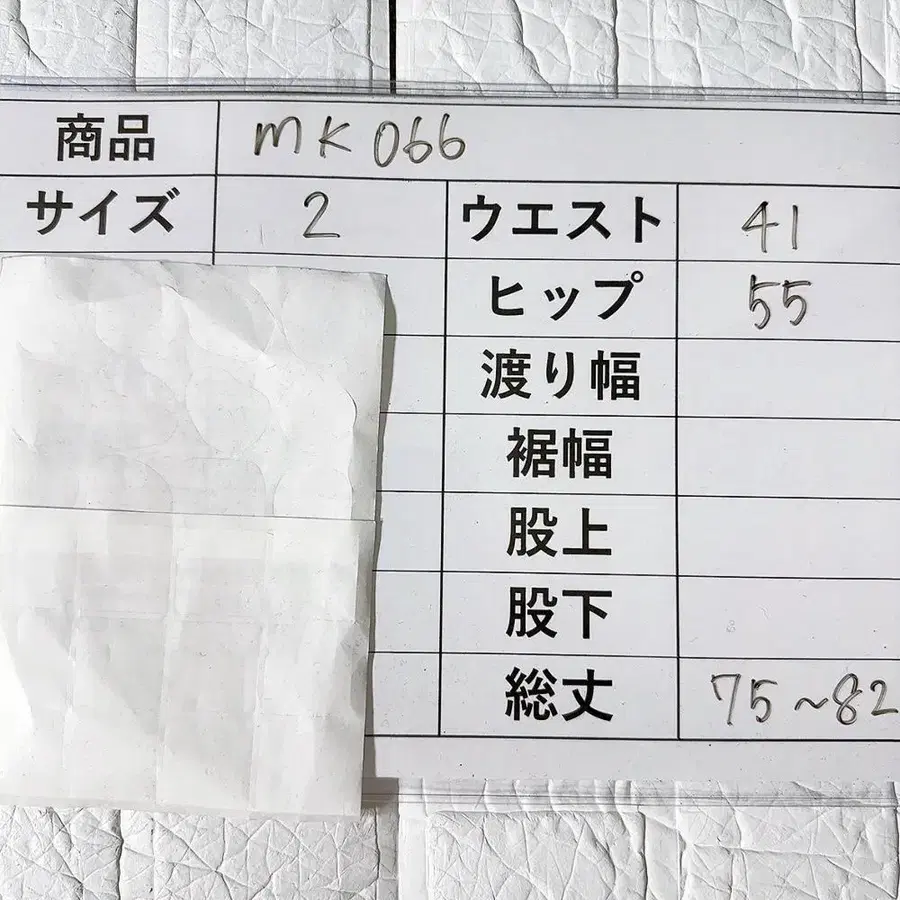 商品 MK 066
サイズ 2 ウエスト 41
ヒップ 55
渡り幅
裾幅
股上
股下
総丈 75~82